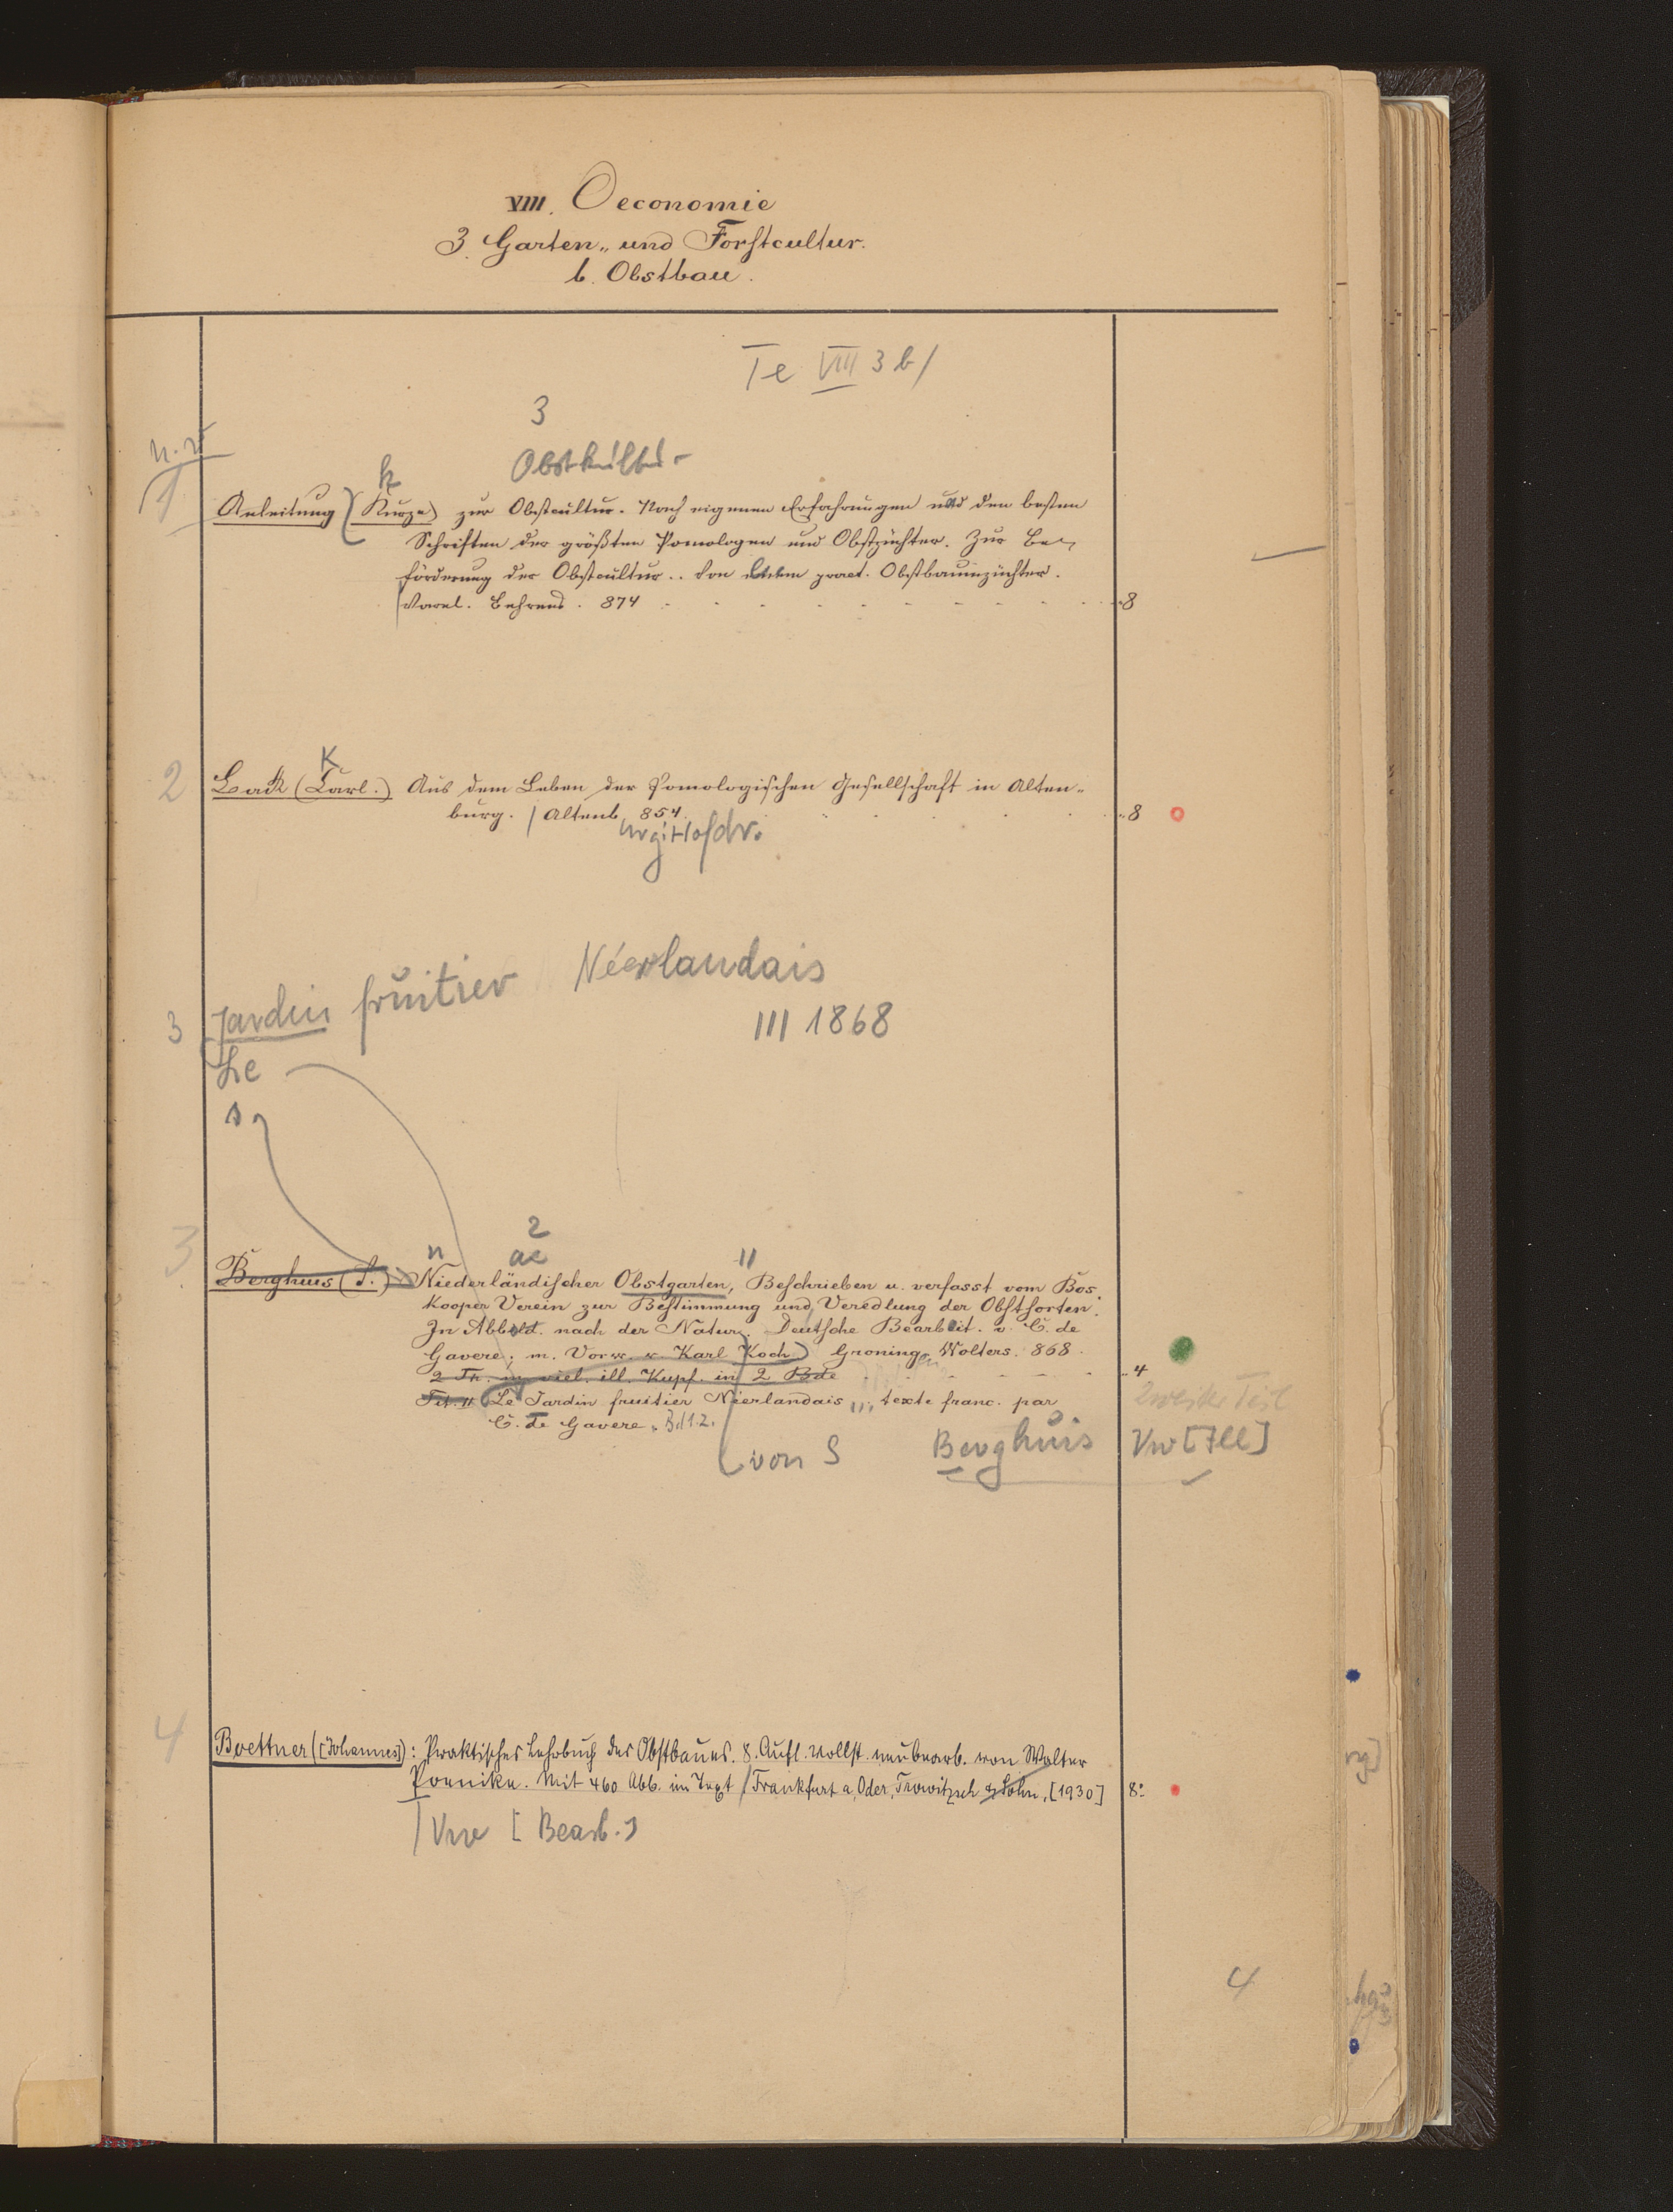 VIII. Oeconomie
3. Garten„ und Forstcultur.
b. Obstbau.
Te VIII 3 b/
3
Obstkultur
k
1 Anleitung (Kurze) zur Obstcultur. Nach eigenen Erfahrungen und den besten
Schriften der größten Pomologen und Obstzüchter. Zur Be„
förderung der Obstcultur.. Von pract. Obstbaumzüchter.
Varel. Behrend. 874 8
K
2 Back (Carl.) Aus dem Leben der Pomologischen Gesellschaft in Alten„
burg. / Altenb. 854. 8
urg: Hofdr.
3 Jardin fruitier Néerlandais
Le III 1868
s
2
n ae II
3 Berghuis (S.) Niederländischer Obstgarten, Beschrieben u. verfasst vom Bos„
kooper Verein zur Bestimmung und Veredlung der Obstsorten.
In Abbild. nach der Natur. Deutsche Bearbeit. v. C. de
Gavere; m. Vorw. v. Karl Koch. Groning. Wolters. 868.
2 Th. m. viel. ill. Kupf. in 2 Bde 4
Tit. II Le Jardin fruitier Néerlandais III; texte franc. par Zweiter Teil
C. de Gavere. Bd 1.2.
von S Berghuis Vw [Ill]
4 Boettner ([Johannes]): Praktisches Lehrbuch des Obstbaues. 8. Aufl. vollst. neubearb. von Walter
Poenike. Mit 460 Abb. im Text / Frankfurt a, Oder, Trowitzsch & Sohn, [1930] 8:
Vw [Bearb.]
4